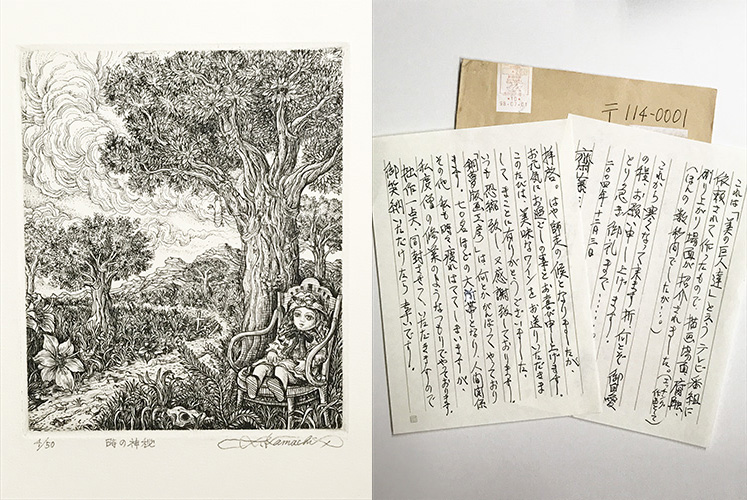 時の神秘
Kamachi
〒114-0001
拝啓。はや師走の候となりましたが、
お元気にお過ごしの事とお喜び申し上げます。
このたびは、美味なワインをお送りいただきま
して、まことに有りがとうございました。
いつも恐縮致し、又感謝致しております。
銅夢版画工房は何とか やっており
ます。七〇名ほどの大所帯となり、人間関係
その他、私も時々疲れはててしまいますが、
私度僧の修業のようなつもりでやっております。
拙作一点、同封させていただきますので
御笑納いただけたら幸いです。
これは「美の巨人達」というテレビ番組に
依頼されて作ったもので描画場面、腐蝕、
刷り上がり場面が紹介されました。
(ほんの数秒間でしたが…。)
これから寒くなって来ます折、何とぞ御自愛
の程、お祈り申し上げます。
とり急ぎ御礼まで……。
二〇〇四年十二月三日